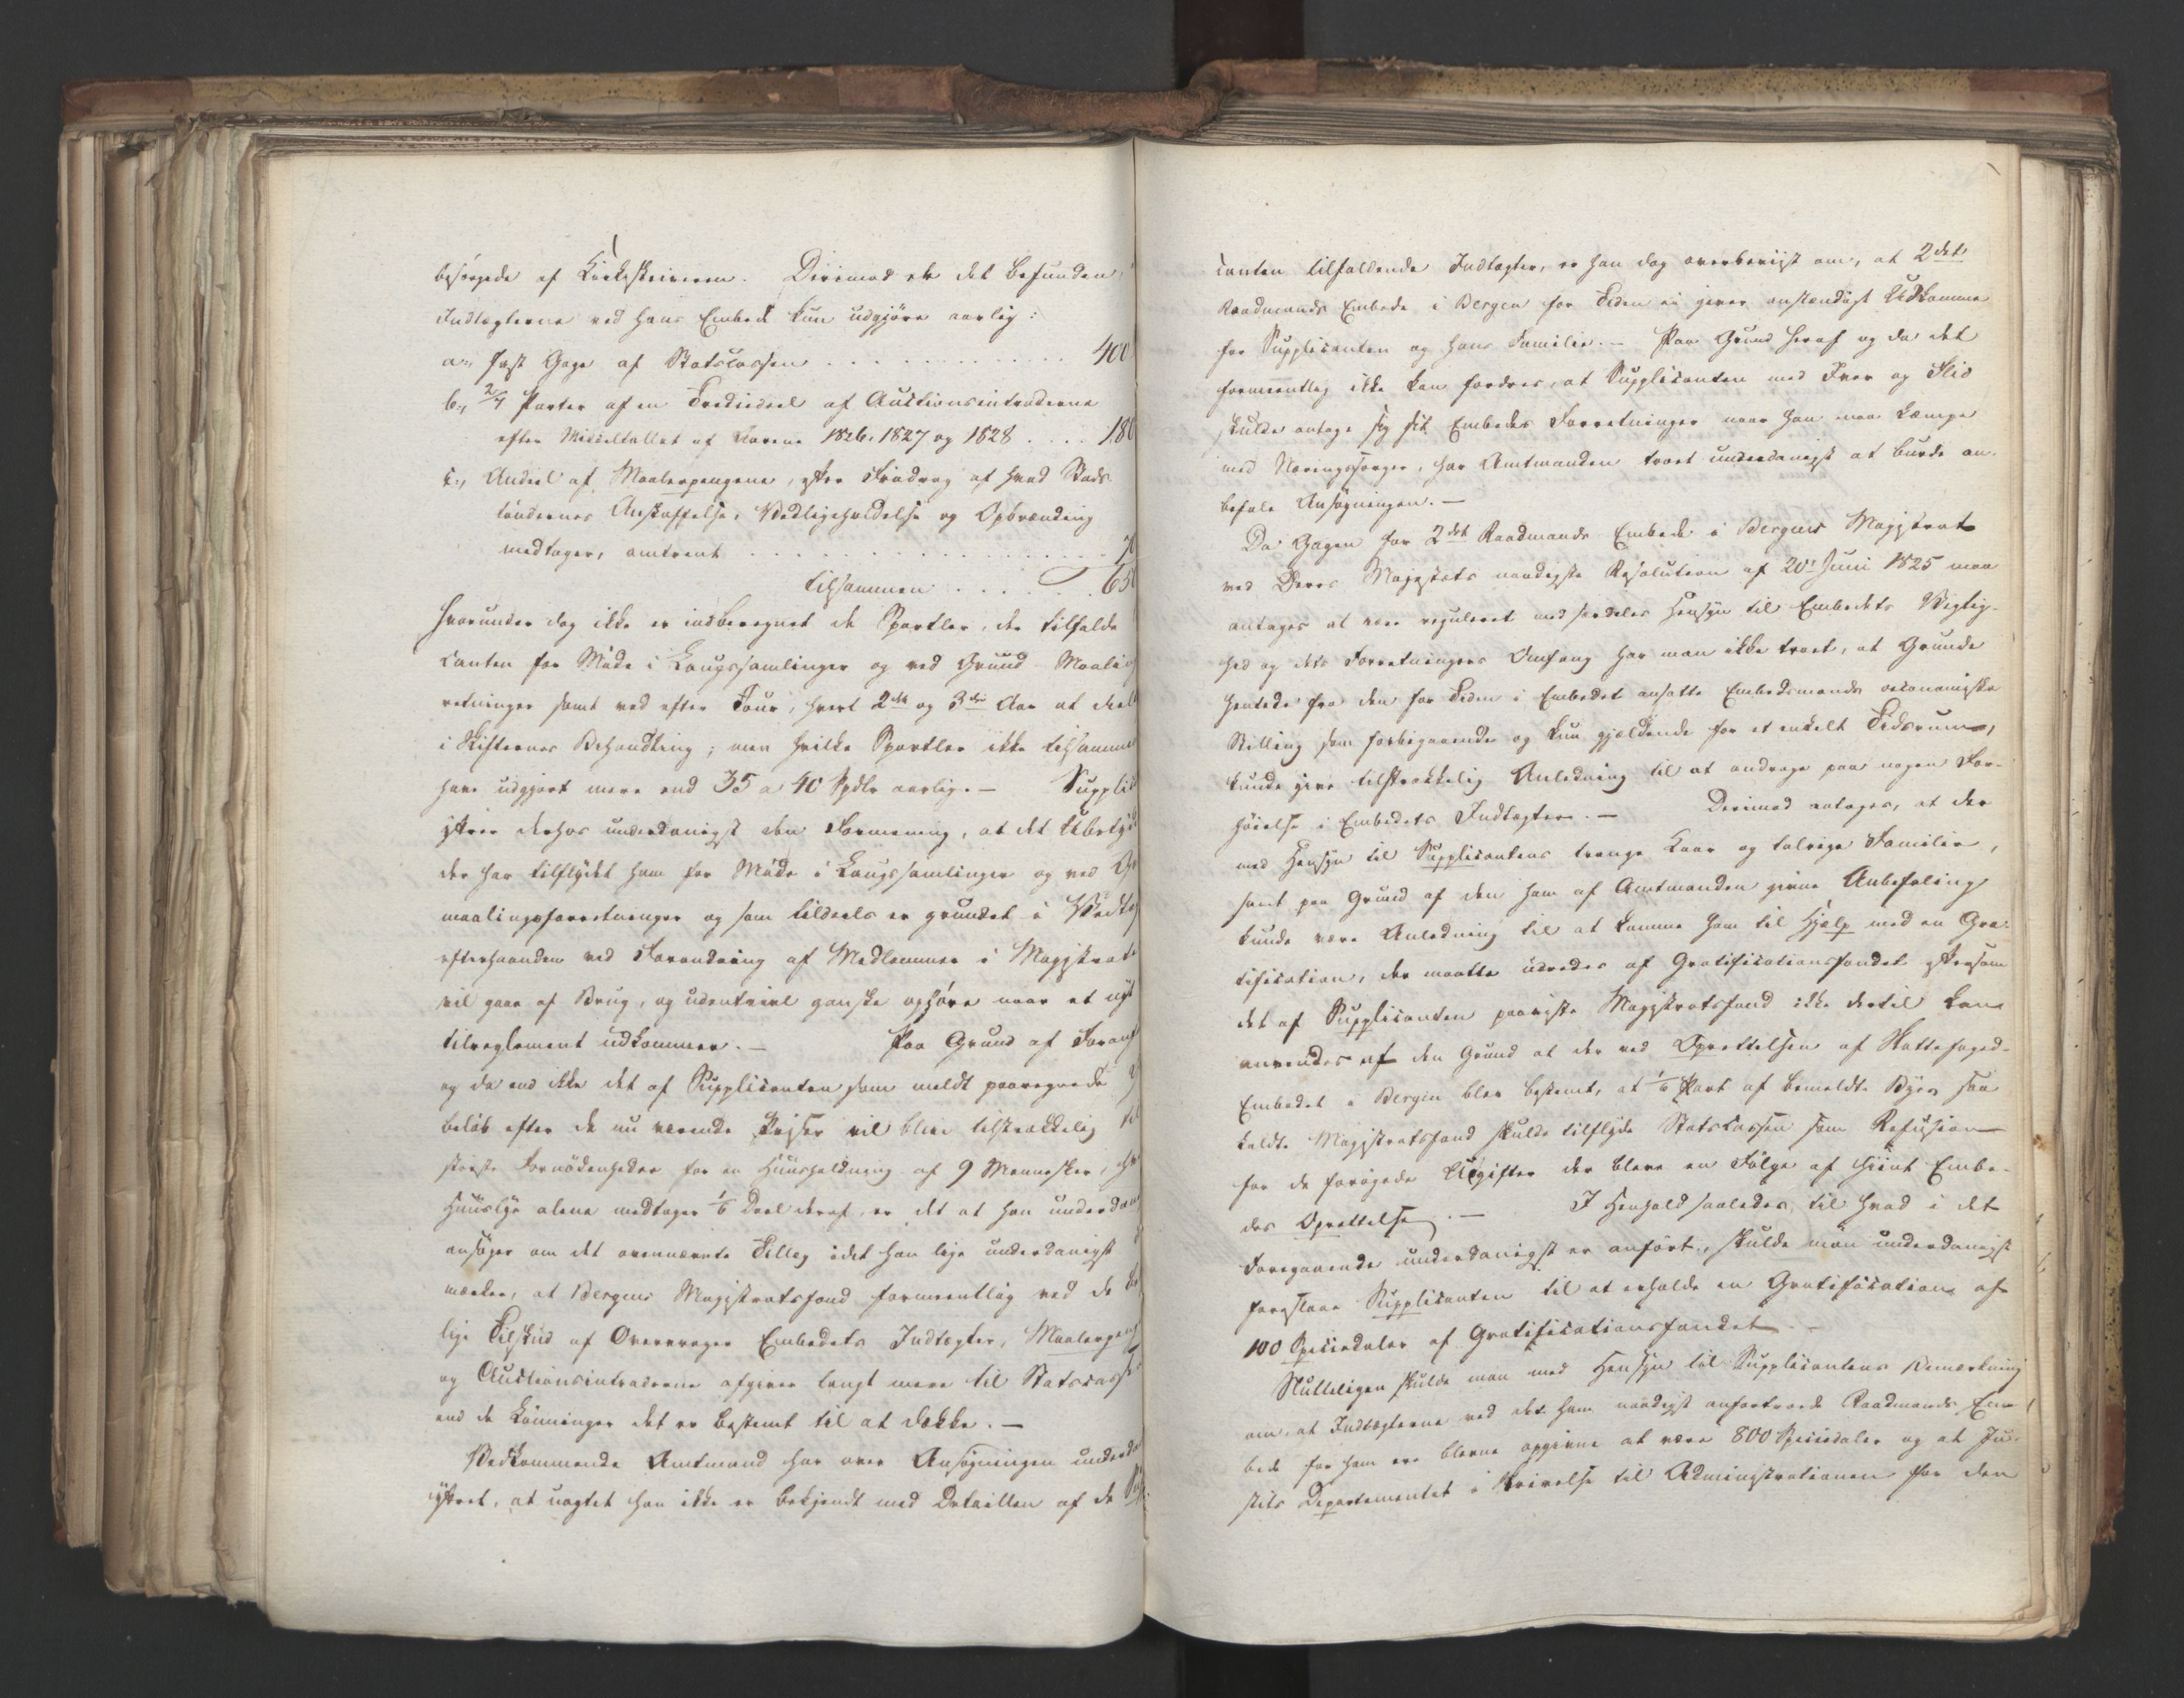 besørgede af Kirkeskriveren. Derimod er det befunden,
Indtægterne ved hans Embede kun udgjøre aarlig:
a., fast Gage af Statscassen . . . . . . . . . . . . . 400
b., 2/7 Parter af en Trediedeel af Auctionsintraderne
efter Middeltallet af Aarene 1826, 1827 og 1828 . . . . 180
c., Andeel af Maalerpengene, efter Fradrag af hvad Stads
töndernes Anskaffelse, Vedligeholdelse og Opbrænding
medtager, omtrent . . . . . . . . . . . . . . . . 70
tilsammen . . . . . . . 650
hvorunder dog ikke er indberegnet de Sportler, der tilfalde
canten for Møde i Laugssamlinger og ved Grund-Maaling
retninger samt ved efter Tour, hvert 2det og 3die Aar at deel
i Skifternes Behandling; men hvilke Sportler ikke tilsammen
have udgjort mere end 35 a 40 Spdlr aarlig. — Supplic
yttrer derhos underdanigst den Formening, at det Ubetyde
der har tilflydt ham for Møde i Laugssamlinger og ved Gr
maalingsforretninger og som tildeels er grundet i Vedtæg
efterhaanden ved Forandring af Medlemmer i Magistrate
vil gaae af Brug, og udentvivl ganske ophøre naar et nyt
tilreglement udkommer. — Paa Grund af Foranf
og da end ikke det af Supplicanten som meldt paaregnede
beløb efter de nu værende Priser vil blive tilstrækkelig til
største Fornødenheder for en Huusholdning af 9 Mennesker, hv
Huusleje alene medtager 1/6 Deel deraf, er det at han underdan
ansøger om det ovennævnte Tillæg idet han lige underdanigst
mærker, at Bergens Magistratsfond formeentlig ved de be
lige Tilskud af Overvrager Embedets Indtægter, Maalerpeng
og Auctionsintraderne afgiver langt mere til Statscasse
end de Lønninger det er bestemt til at dække. —
Vedkommende Amtmand har over Ansøgningen underda
yttret, at uagtet han ikke er bekjendt med Detaillen af de Su
canten tilfaldende Indtægter, er han dog overbeviist om, at 2det
Raadmands Embede i Bergen for Tiden ei giver anstændigt Udkomme
for Supplicanten og hans Familie. — Paa Grund heraf og da det
formeentlig ikke kan fordres, at Supplicanten med Iver og Flid
skulde antage sig sit Embedes Forretninger naar han maa kæmpe
med Næringssorger, har Amtmanden troet underdanigst at burde an-
befale Ansøgningen. —
Da Gagen for 2det Raadmands Embede i Bergens Magistrat
ved Deres Majestæts naadigste Resolution af 20de Juni 1825 maa
antages at være reguleret med særdeles Hensyn til Embedets Vigtig-
hed og dets Forretningers Omfang har man ikke troet, at Grunde
hentede fra den for Tiden i Embedet ansatte Embedsmands oeconomiske
Stilling som forbigaaende og kun gjældende for et enkelt Tidsrum,
kunde give tilstrækkelig Anledning til at andrage paa nogen For-
høielse i Embedets Indtægter. — Derimod antages, at der
med Hensyn til Supplicantens trange Kaar og talrige Familie,
samt paa Grund af den ham af Amtmanden givne Anbefaling
kunde være Anledning til at komme ham til Hjælp med en Gra-
tification, der maatte udredes af Gratificationsfondet eftersom
det af Supplicanten paaviste Magistratsfond ikke dertil kan
anvendes af den Grund at der ved Oprettelsen af Stattsfoged-
Embedet i Bergen blev bestemt, at 1/6 Part af bemeldte Byes saa
kaldte Magistratsfond skulde tilflyde Statscassen som Refusion
for de forøgede Udgifter der bleve en Følge af hiint Embe-
des Oprettelse. — I Henhold saaledes til hvad i det
Foregaaende underdanigst er anført, skulde man underdanigst
foreslaae Supplicanten til at erholde en Gratification af
100 Speciedaler af Gratificationsfondet. —
Slutteligen skulde man med Hensyn til Supplicantens Bemærkning
om, at Indtægterne ved det ham naadigst anfortroede Raadmands Em-
bede for ham ere blevne opgivne at være 800 Speciedaler og at Ju-
stits Departementet i Skrivelse til Administrationen for den